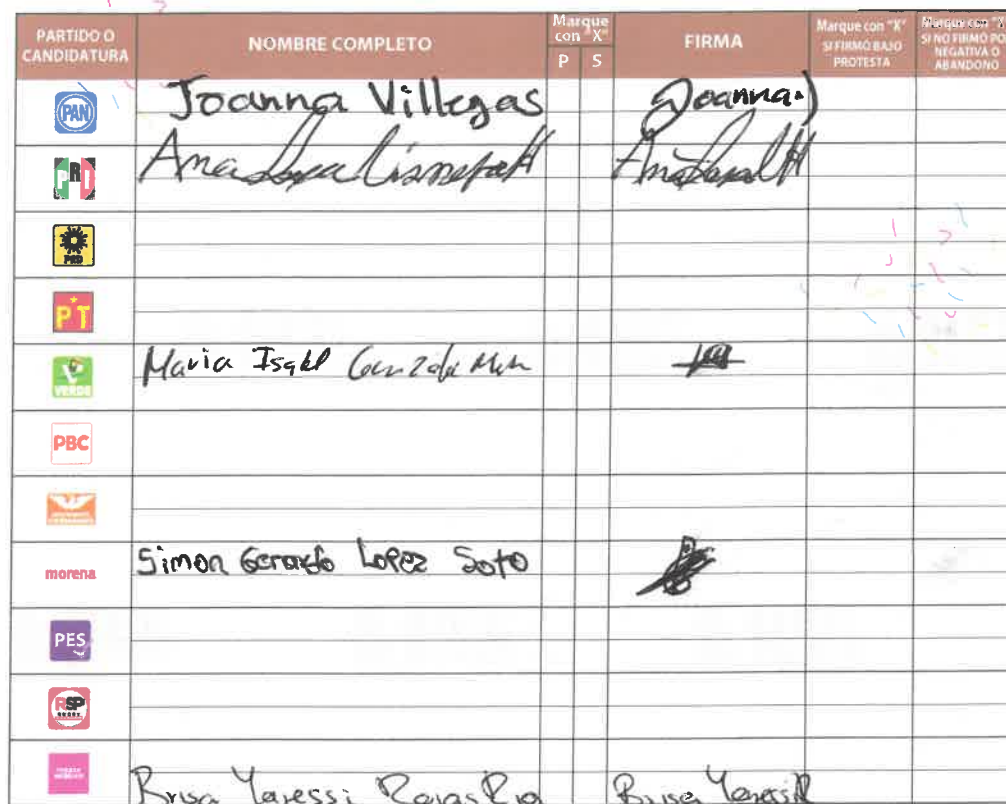 PARTIDO O CANDIDATURA
NOMBRE COMPLETO
Marque con "X"
P S
FIRMA
Marque con "X" SI FIRMÓ BAJO PROTESTA
Marque con "X" SI NO FIRMÓ POR NEGATIVA O ABANDONO
PAN Joanna Villegas Joanna
PRI Ana
PRD
PT
VERDE Maria Isabel
PBC
morena Simon Gerardo Lopez Soto
PES
RSP
Brisa Yaressi Brisa